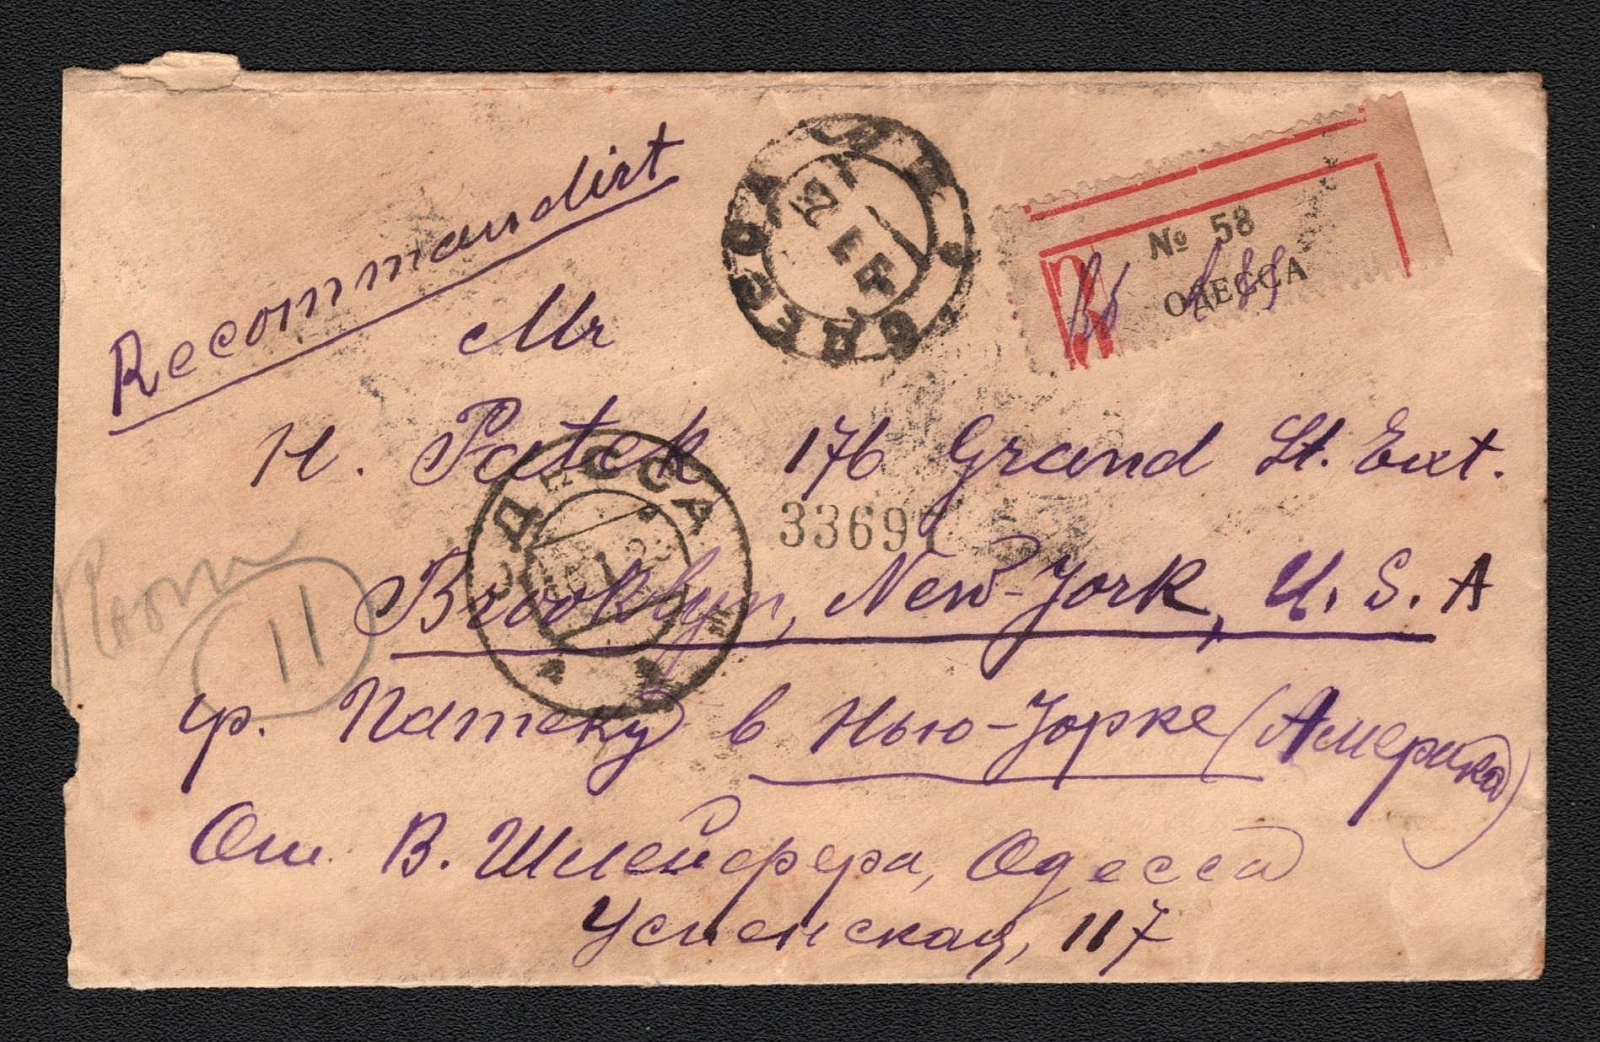 Recommandirt
№ 58
ОДЕССА
ОДЕССА
Mr
H. Patek 176 Grand St. Ext.
ОДЕССА
33697
Room 11
Brooklyn, New-Jork, U. S. A
гр. Патеку в Нью-Jорке (Америка)
От В. Шлейфера, Одесса
Успенская, 117